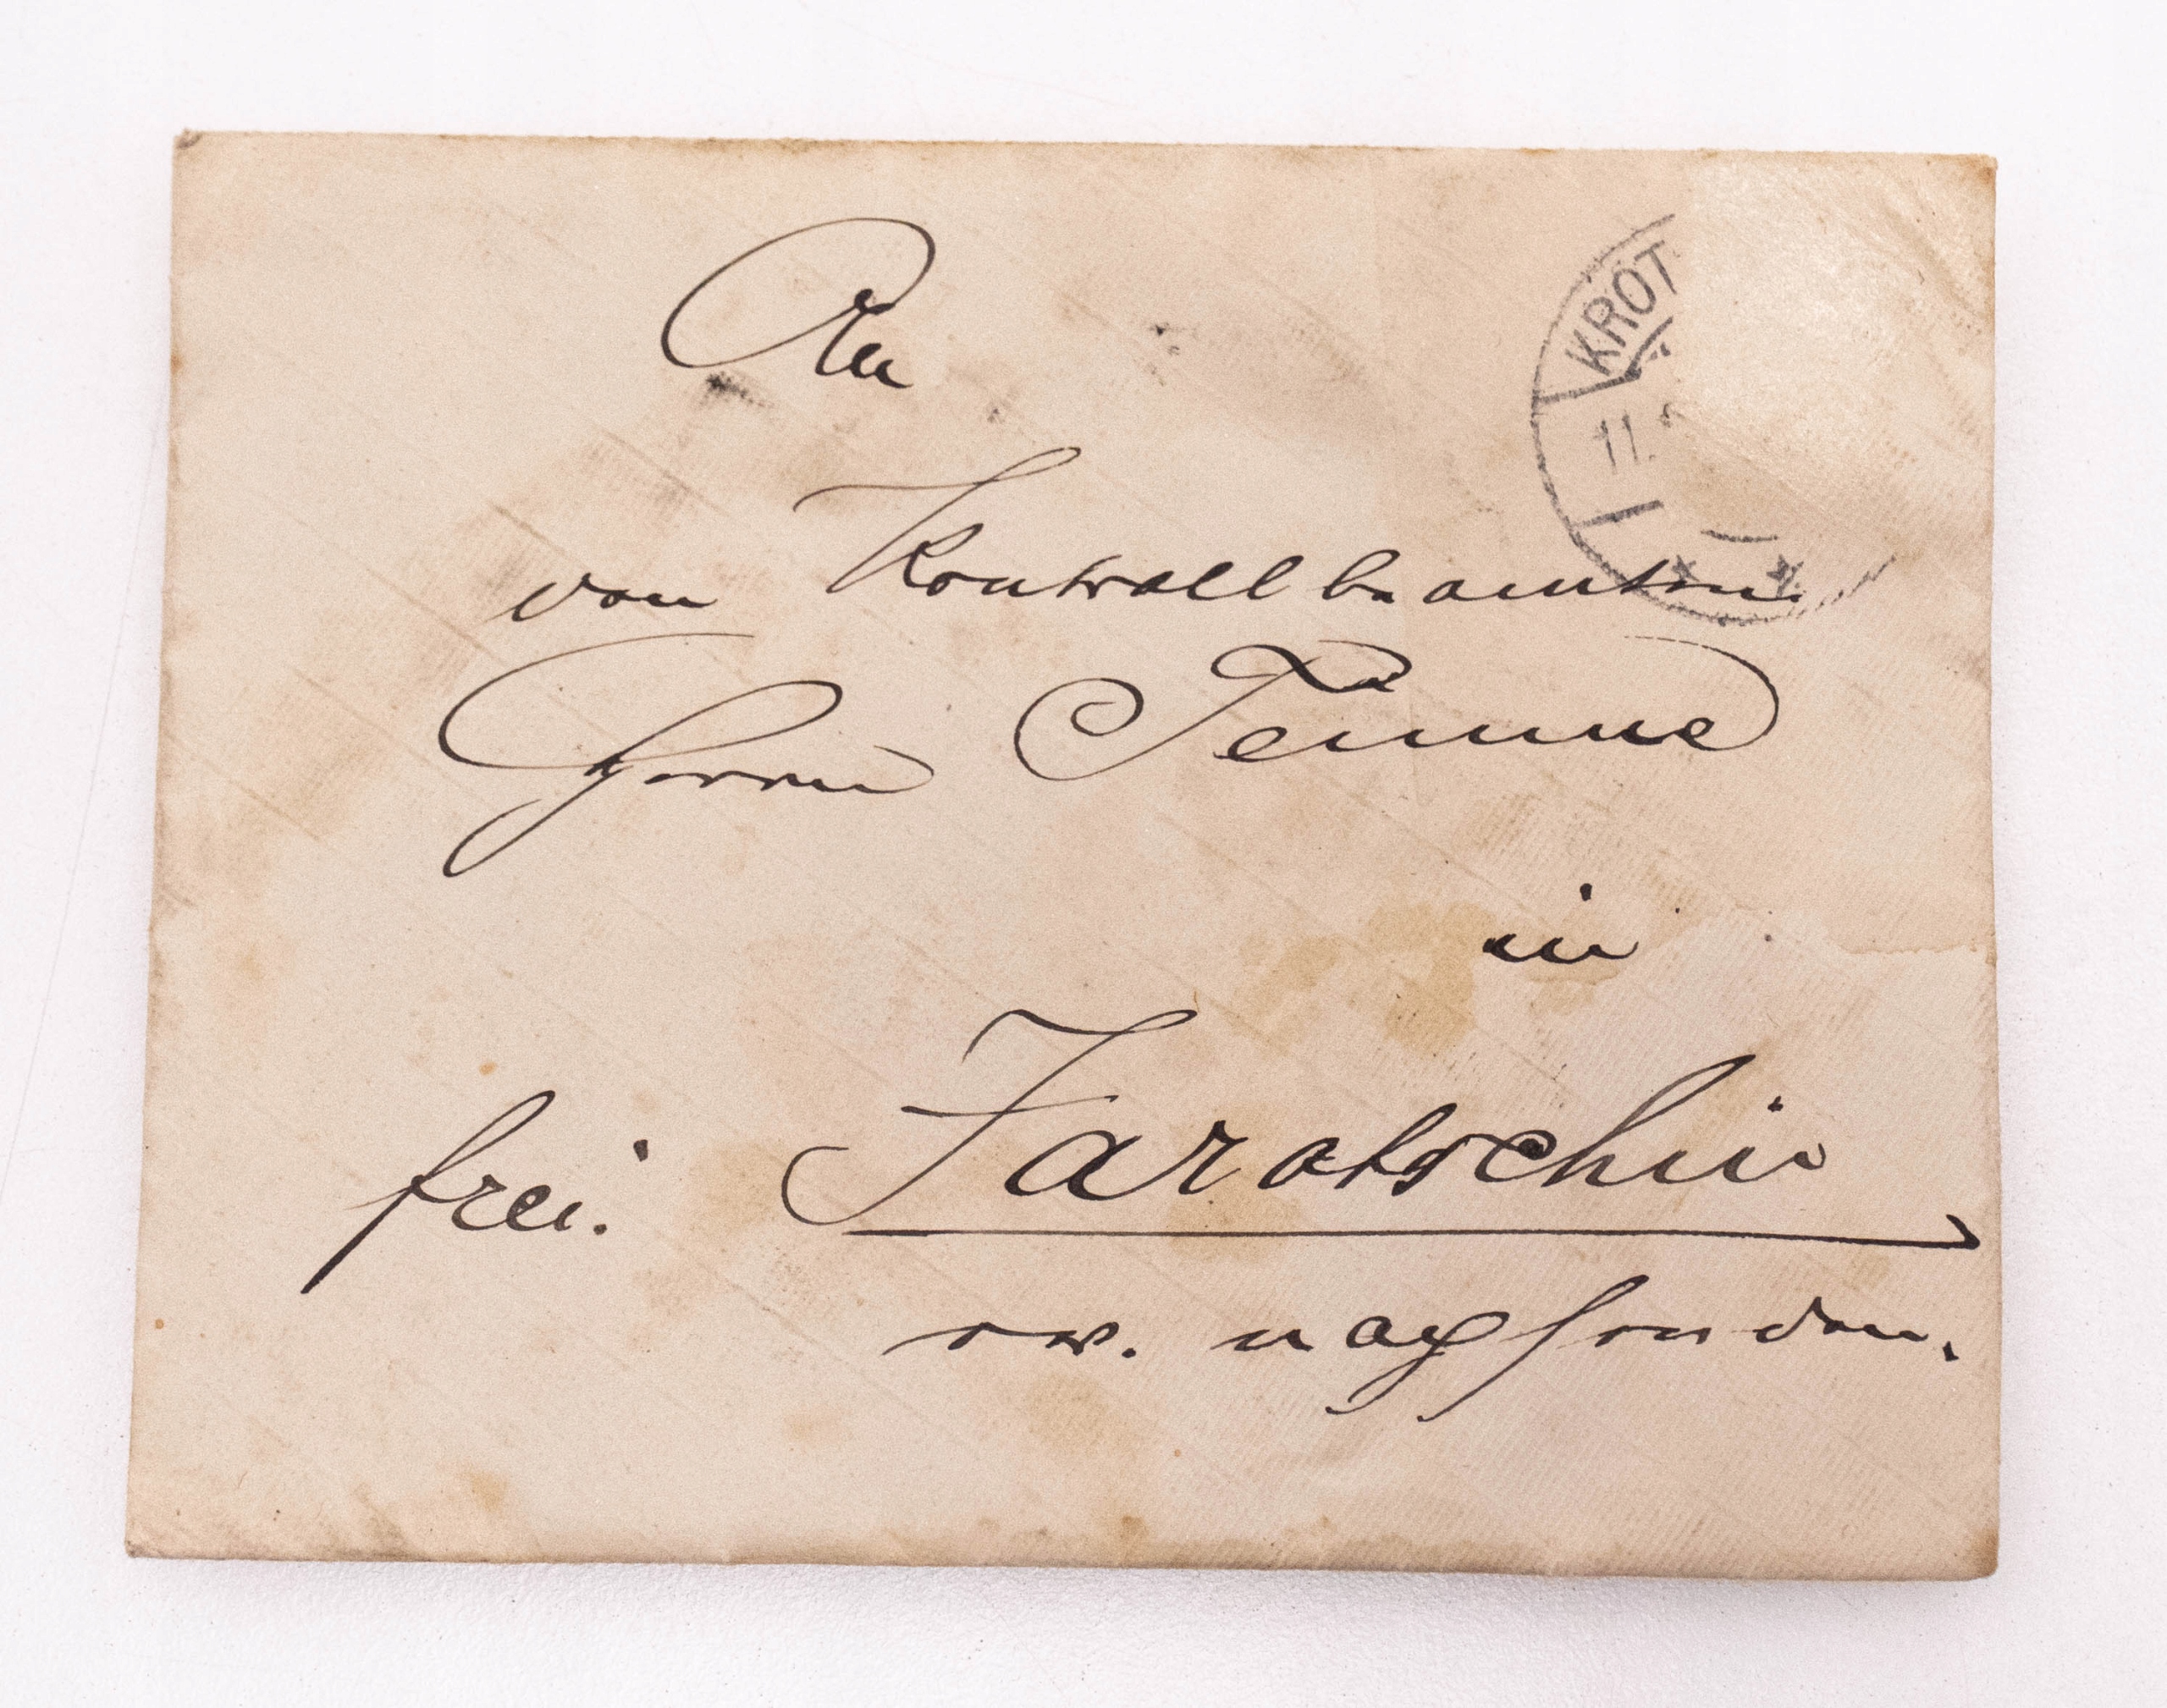 An
den Kontrollbeamten
Herrn Temme
in
frei. Jarotschin
ev. nachsenden.
KROT
11.